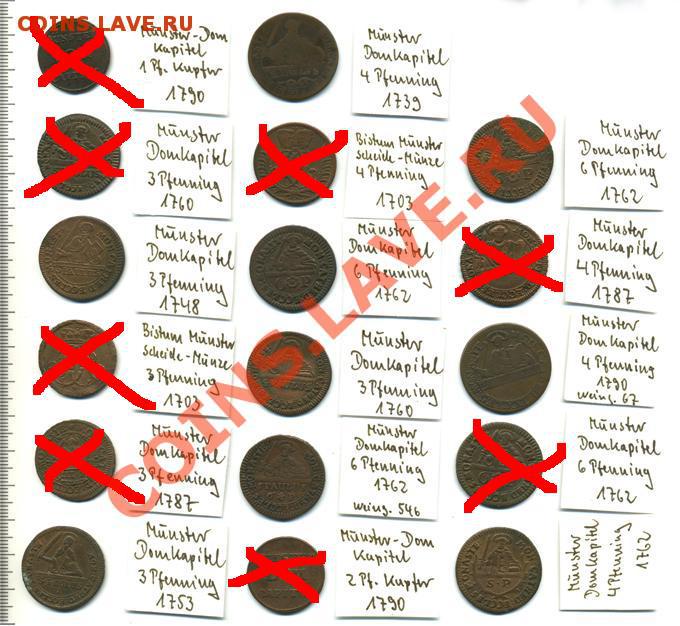 COINS.LAVE.RU
Münster-Dom
Kapitel
1 Pf. Kupfer
1790
Münster
Domkapitel
4 Pfenning
1739
Münster
Domkapitel
3 Pfenning
1760
Bistum Münster
Scheide-Münze
4 Pfenning
1703
Münster
Domkapitel
6 Pfenning
1762
Münster
Domkapitel
3 Pfenning
1748
Münster
Domkapitel
6 Pfenning
1762
Münster
Domkapitel
4 Pfenning
1787
Bistum Münster
Scheide-Münze
3 Pfenning
1703
Münster
Domkapitel
3 Pfenning
1760
Münster
Domkapitel
4 Pfenning
1790
weing. 67
Münster
Domkapitel
3 Pfenning
1787
Münster
Domkapitel
6 Pfenning
1762
weing. 546
Münster
Domkapitel
6 Pfenning
1762
Münster
Domkapitel
3 Pfenning
1753
Münster-Dom
Kapitel
2 Pf. Kupfer
1790
Münster
Domkapitel
4 Pfenning
1762
COINS.LAVE.RU